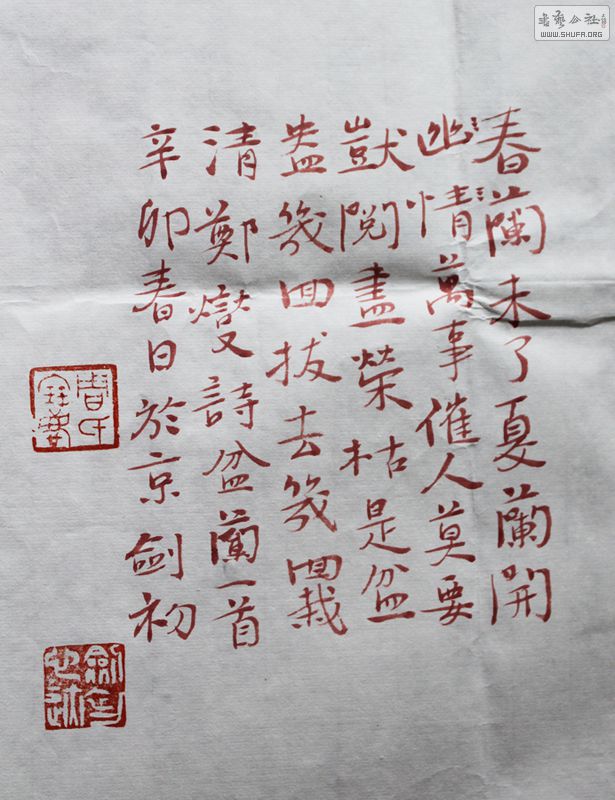 春蘭未了夏蘭開
幽情萬事催人莫要
獃閱盡榮枯是盆
盎幾回拔去幾回栽
清鄭燮詩盆蘭一首
辛卯春日於京劍初
周氏
書藝公社
WWW.SHUFA.ORG